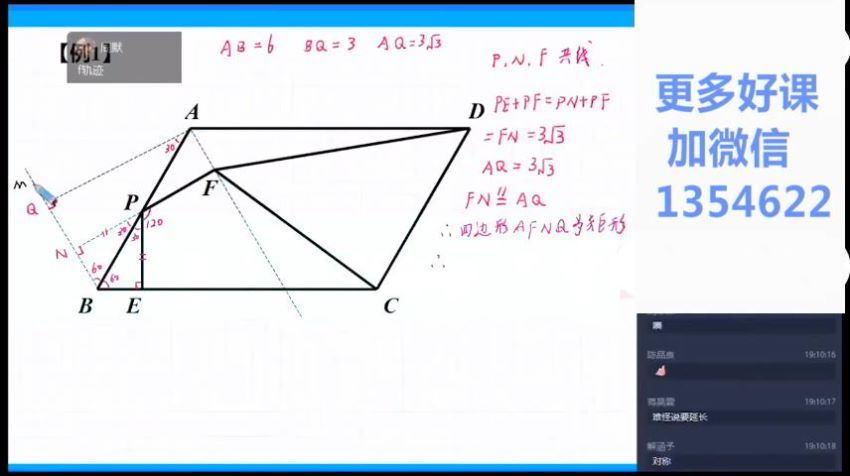 【例1】
f轨迹
AB=6 BQ=3 AQ=3√3
P、N、F 共线.
PE+PF=PN+PF
=FN=3√3
AQ=3√3
FN∥= AQ
∴四边形AFNQ为矩形
∴
A
D
30
F
M
Q
P
120
30
30
N
60
60
B
E
C
更多好课
加微信
1354622
19:10:16
19:10:17
难怪说要延长
19:10:18
对称